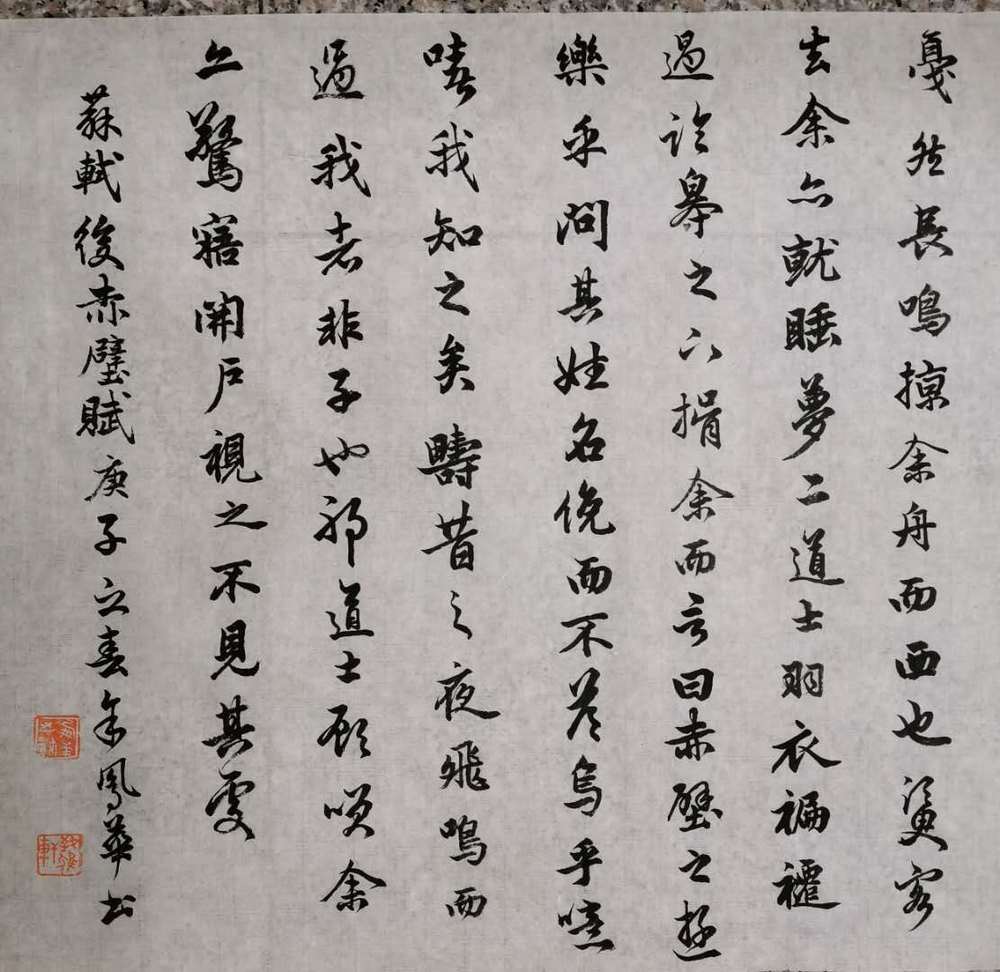 戞然長鳴掠余舟而西也須臾客
去余亦就睡夢二道士羽衣褊褼
過臨皋之下揖余而言曰赤壁之遊
樂乎問其姓名俛而不答烏乎噫
嘻我知之矣疇昔之夜飛鳴而
過我者非子也邪道士顧笑余
亦驚寤開戶視之不見其處
蘇軾後赤壁賦庚子之春余鳳華书